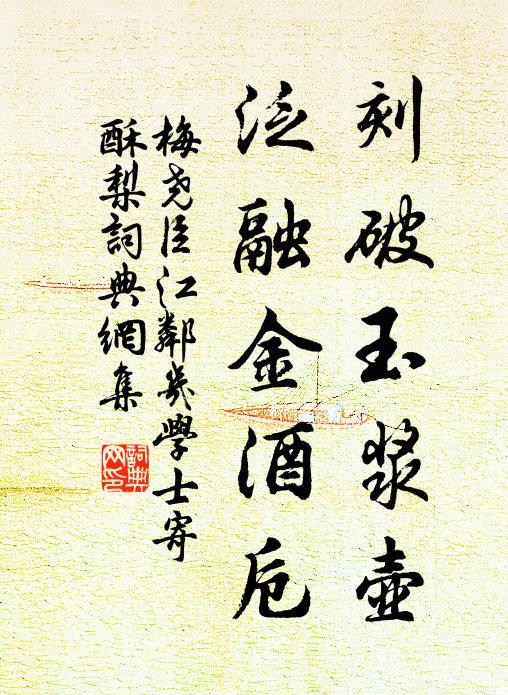 刻破玉漿壺
泛融金酒卮
梅尧臣江鄰幾學士寄
酥梨詞典網集
詞典
网印